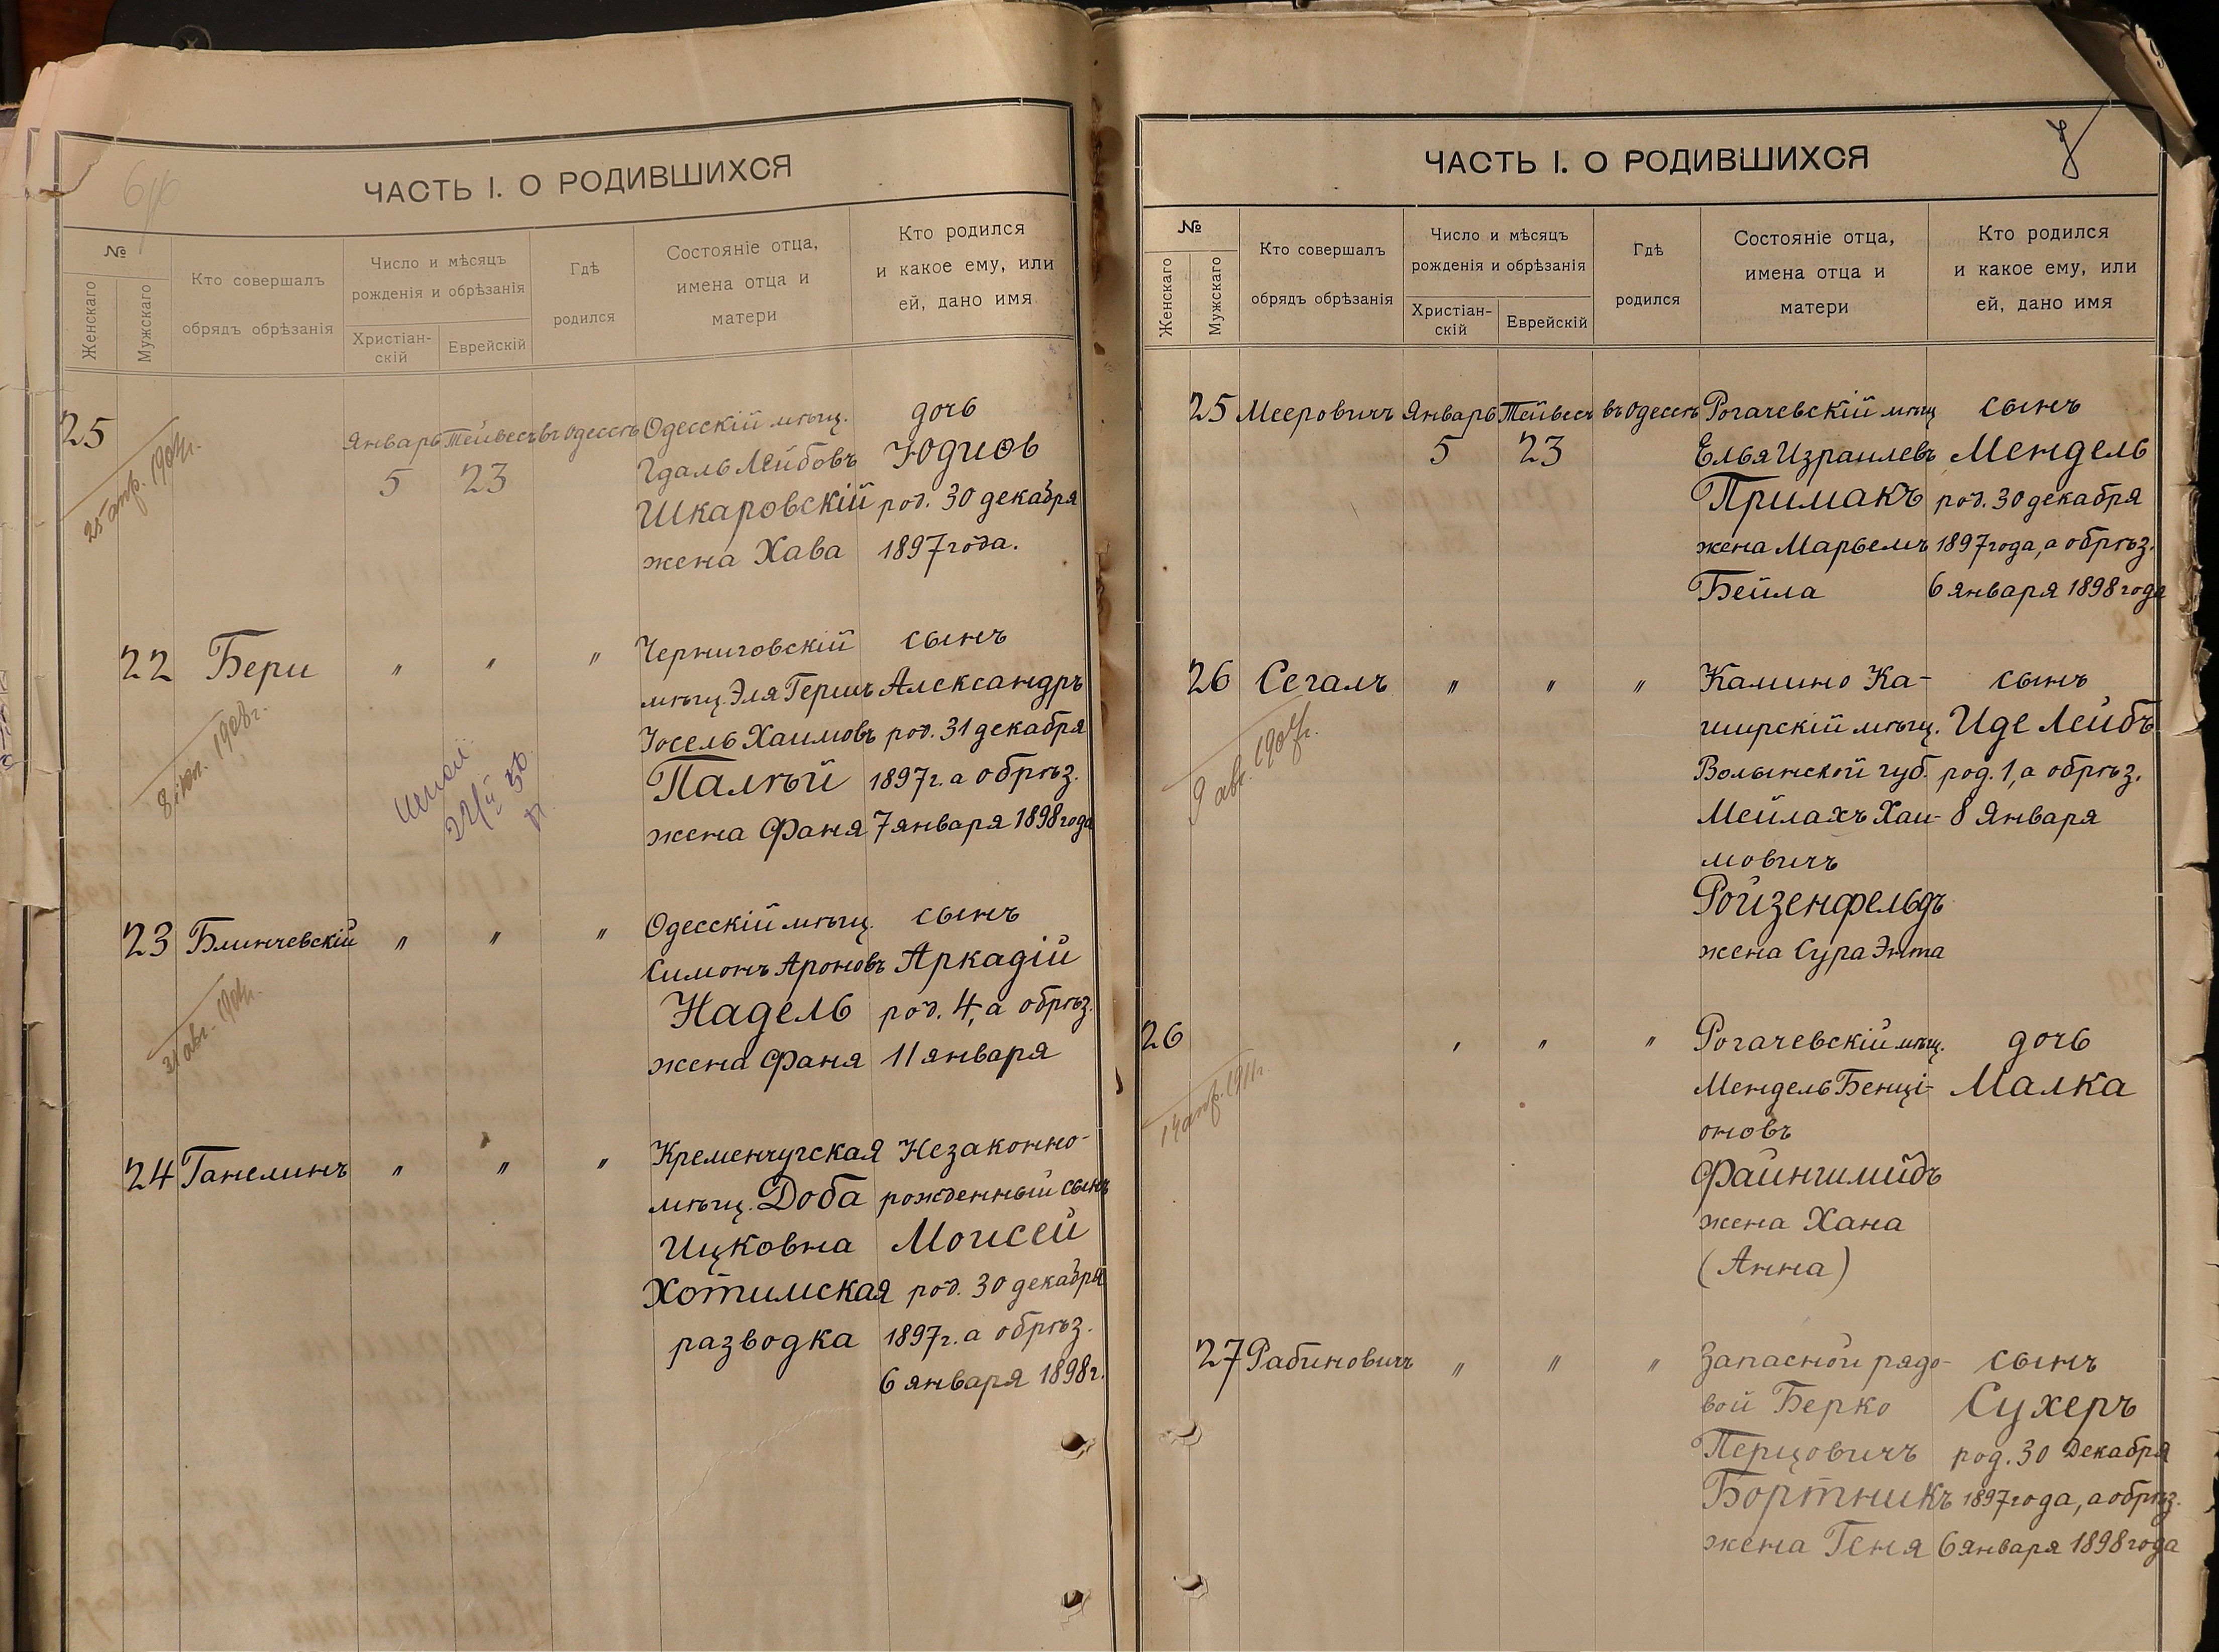 ЧАСТЬ I. О РОДИВШИХСЯ
№
Женскаго
Мужскаго
Кто совершалъ
обрядъ обрѣзанія
Число и мѣсяцъ
рожденія и обрѣзанія
Христіан-
скій
Еврейскій
Гдѣ
родился
Состояніе отца,
имена отца и
матери
Кто родился
и какое ему, или
ей, дано имя
25
25 апр. 1904г.
Январь
5
Тейвесъ
23
въ Одессѣ
Одесскій мѣщ.
Гдаль Лейбовъ
Шкаровскій
жена Хава
дочь
Юдиѳь
род. 30 декабря
1897 года.
22
Бери
" " "
Черниговскій
мѣщ. Эля Гершъ
Іосель Хаимовъ
Палѣй
жена Фаня
сынъ
Александръ
род. 31 декабря
1897 г. а обрѣз.
7 января 1898 года
23
Блинчевскій
" " "
Одесскій мѣщ.
Симонъ Ароновъ
Надель
жена Фаня
сынъ
Аркадій
род. 4, а обрѣз.
11 января
24
Ганелинъ
" " "
Кременчугская
мѣщ. Доба
Ицковна
Хотимская
разводка
Незаконно-
рожденный сынъ
Моисей
род. 30 декабря
1897 г. а обрѣз.
6 января 1898 г.
ЧАСТЬ I. О РОДИВШИХСЯ
№
Женскаго
Мужскаго
Кто совершалъ
обрядъ обрѣзанія
Число и мѣсяцъ
рожденія и обрѣзанія
Христіан-
скій
Еврейскій
Гдѣ
родился
Состояніе отца,
имена отца и
матери
Кто родился
и какое ему, или
ей, дано имя
25
Мееровичъ
Январь
5
Тейвесъ
23
въ Одессѣ
Рогачевскій мѣщ
Елья Израилевъ
Примакъ
жена Марьемъ
Бейла
сынъ
Мендель
род. 30 декабря
1897 года, а обрѣз.
6 января 1898 года
26
Сегалъ
" " "
Камино Ка-
ширскій мѣщ.
Волынской губ.
Мейлахъ Хаи-
мовичъ
Ройзенфельдъ
жена Сура Энта
сынъ
Иде Лейбъ
род. 1, а обрѣз.
8 Января
26
14 апр. 1911г
" " "
Рогачевскій мѣщ.
Мендель Бенці-
оновъ
Файншмидъ
жена Хана
(Анна)
дочь
Малка
27
Рабиновичъ
" " "
Запасной рядо-
вой Берко
Перцовичъ
Бортникъ
жена Геня
сынъ
Сухеръ
род. 30 Декабря
1897 года, а обрѣз.
6 января 1898 года